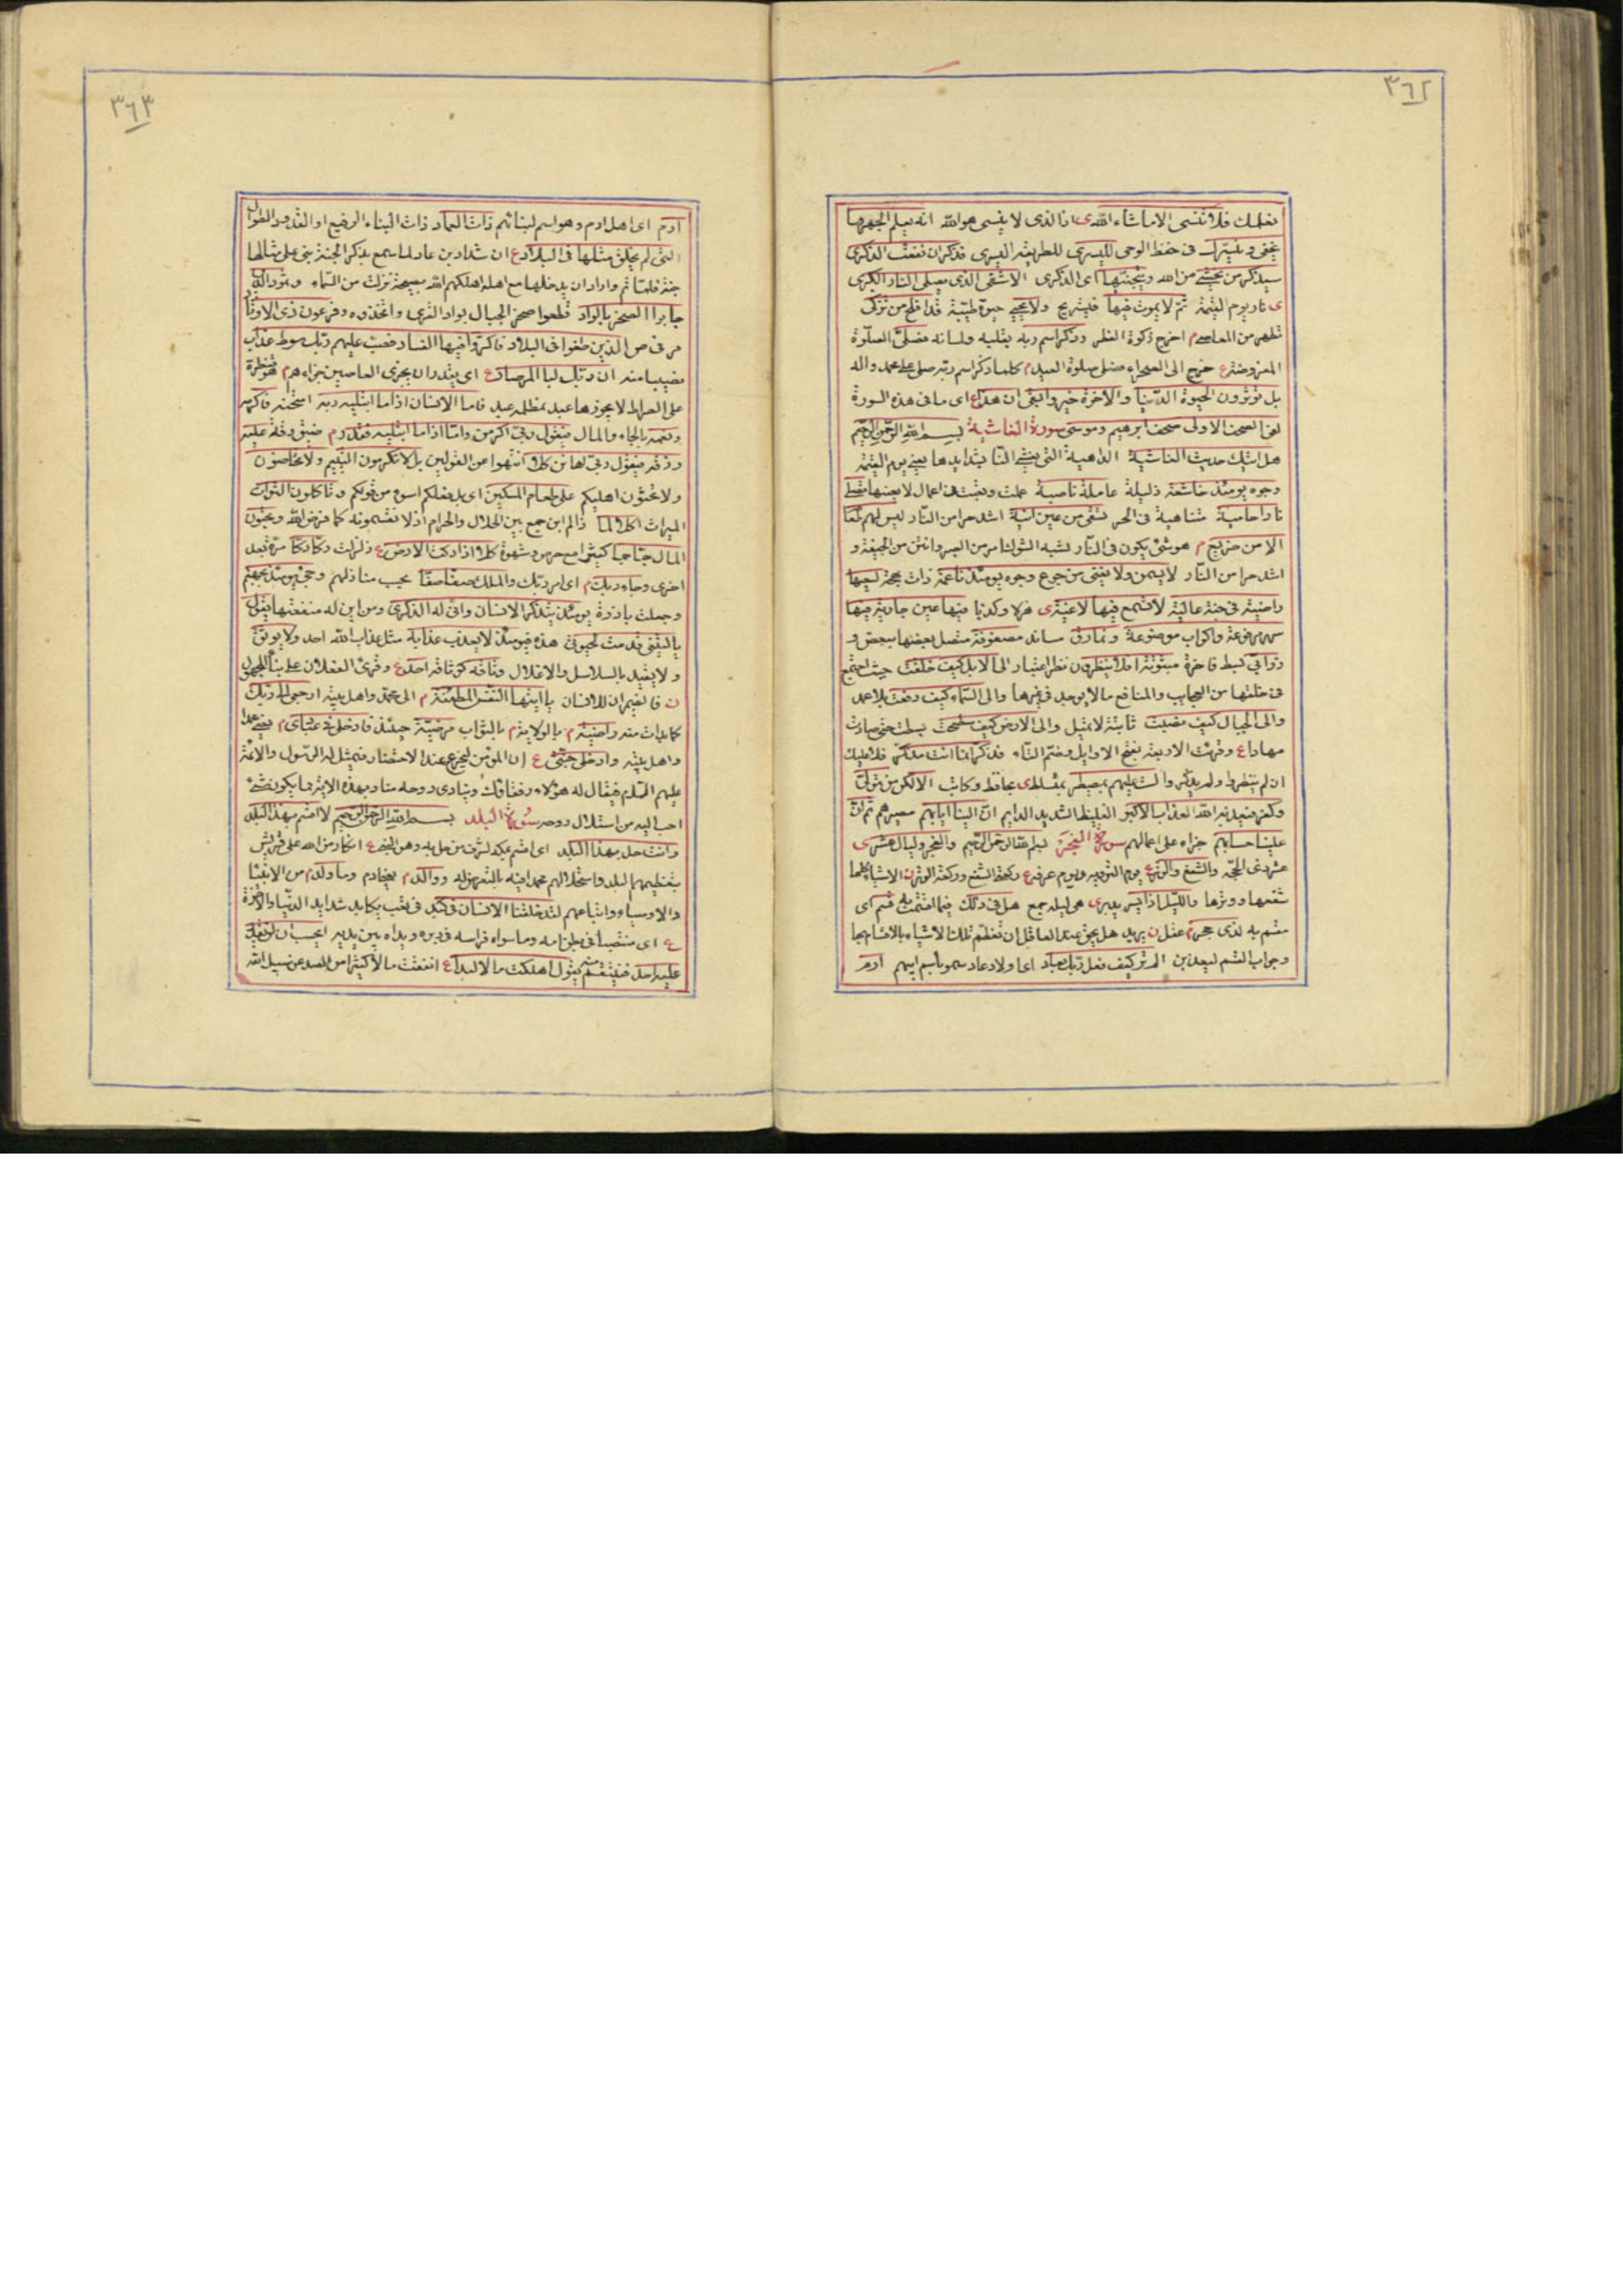 ٣٦٢
نعلمك فلا تنسى الا ما شاء الله ى فالذى لا ينسى هو الله انه يعلم الجهر وما
يخفى ونيسرك فى حفظ الوحى لليسرى للطريقة اليسرى فذكر ان نفعت الذكرى
سيذكر من يخشى من الله ويتجنبها اى الذكرى الاشقى الذى يصلى النار الكبرى
ى نار يوم القيمة ثم لا يموت فيها فيستريح ولا يحيى حيوة طيبة قد افلح من تزكى
تطهر من المعاصى م اخرج زكوة الفطر وذكر اسم ربه بقلبه ولسانه فصلى الصلوة
المفروضة ع خرج الى الصحراء فصلى صلوة العيد م كلما ذكر اسم ربه صلى على محمد واله
بل تؤثرون الحيوة الدنيا والاخرة خير وابقى ان هذا ع اى ما فى هذه السورة
لفى الصحف الاولى صحف ابرهيم وموسى سورة الغاشية بسم الله الرحمن الرحيم
هل اتيك حديث الغاشية الداهية التى يغشى الناس شدايدها يعنى يوم القيمة
وجوه يومئذ خاشعة ذليلة عاملة ناصبة عملت وتعبت فى اعمال لا يعينها تصلى
نارا حامية متناهية فى الحر تسقى من عين انية اشد حرا من النار ليس لهم طعام
الا من ضريع م هو شئ يكون فى النار يشبه الشوك امر من الصبر وانتن من الجيفة و
اشد حرا من النار لا يسمن ولا يغنى من جوع وجوه يومئذ ناعمة ذات بهجة لسعيها
راضية فى جنة عالية لا تسمع فيها لاغية ى هزلا وكذبا فيها عين جارية فيها
سرر مرفوعة واكواب موضوعة ونمارق مساند مصفوفة متصل بعضها ببعض و
زرابى بسط فاخرة مبثوثة افلا ينظرون نظر اعتبار الى الابل كيف خلقت حيث اجتمع
فى خلقها من العجايب والمنافع ما لا يوجد فى غيرها والى السماء كيف رفعت بلا عمد
والى الجبال كيف نصبت ثابتة لا تميل والى الارض كيف سطحت بسطت حتى صارت
مهادا ع وقرئت الاربعة بفتح الاوايل وضم التاء فذكر انما انت مذكر فلا عليك
ان لم ينظروا ولم يذكروا لست عليهم بمصيطر بمتسلط ى بحافظ وكاتب الا لكن من تولى
وكفر فيعذبه الله العذاب الاكبر الغليظ الشديد الدايم ان الينا ايابهم مصيرهم ثم ان
علينا حسابهم جزاء على اعمالهم سورة الفجر بسم الله الرحمن الرحيم والفجر وليال عشر ى
عشر ذى الحجة والشفع والوتر ع يوم التروية ويوم عرفة ع ركعتا الشفع وركعة الوتر ن الاشياء كلها
شفعها ووترها والليل اذا يسر يدبر ى هى ليلة جمع هل فى ذلك فيما اقسمت به قسم اى
مقسم به لذى حجر م عقل ن يريد هل يحق عند العاقل ان تعظم تلك الاشياء بالاقسام بها
وجواب القسم ليعذبن الم تر كيف فعل ربك بعاد اى اولاد عاد سموا باسم ابيهم ارم
٣٦٣
ارم اى اهل ارم وهو اسم لبنائهم ذات العماد ذات البناء الرفيع او القدود الطوال
التى لم يخلق مثلها فى البلاد ع ان شداد بن عاد لما سمع بذكر الجنة بنى على مثالها
جنة فلما تم واراد ان يدخلها مع اهله اهلكهم الله بصيحة نزلت من السماء وثمود الذين
جابوا الصخر بالواد قطعوا صخر الجبال بواد القرى واتخذوه وفرعون ذى الاوتاد
مر فى ص الذين طغوا فى البلاد فاكثروا فيها الفساد فصب عليهم ربك سوط عذاب
نصيبا منه ان ربك لبالمرصاد ع اى يقدر ان يجزى العاصين جزاءهم م قنطرة
على الصراط لا يجوزها عبد بمظلمة عبد فاما الانسان اذا ما ابتليه ربه امتحنه فاكرمه
ونعمه بالجاه والمال فيقول ربى اكرمن واما اذا ما ابتليه فقدر م ضيق وقتر عليه
رزقه فيقول ربى اهانن كلا انتهوا عن القولين بل لا تكرمون اليتيم ولا تحاضون
ولا تحثون اهليكم على طعام المسكين اى بل فعلكم اسوء من قولكم وتاكلون التراث
الميراث اكلا لما ذا لم اى جمع بين الحلال والحرام اذ لا تقسمونه كما فرض الله وتحبون
المال حبا جما كثيرا مع حرص وشهوة كلا اذا دكت الارض ع زلزلت دكا دكا مرة بعد
اخرى وجاء ربك م اى امر ربك والملك صفا صفا بحسب منازلهم وجئ يومئذ بجهنم
وجعلت بارزة يومئذ يتذكر الانسان وانى له الذكرى ومن اين له منفعتها يقول
يا ليتنى قدمت لحيوتى هذه فيومئذ لا يعذب عذابه مثل عذاب الله احد ولا يوثق
ولا يقيد بالسلاسل والاغلال وثاقه كوثاقه احد ع وقرئ الفعلان على بناء المجهول
ن فالضميران للانسان يا ايتها النفس المطمئنة م الى محمد واهل بيته ارجعى الى ربك
كما بدات منه راضية م بالولاية م بالثواب مرضية حينئذ فادخلى فى عبادى م يعنى محمدا
واهل بيته وادخلى جنتى ع ان المؤمن ليجزع عند الاحتضار فيمثل له الرسول والائمة
عليهم السلم فيقال له هؤلاء رفقاؤك وينادى روحه مناد بهذه الاية فما يكون شئ
احب اليه من استلال روحه سورة البلد بسم الله الرحمن الرحيم لا اقسم بهذا البلد
وانت حل بهذا البلد اى اقسم بمكة لشرف من حل به وهو النبى ع انكار من الله على قريش
بتعظيمهم البلد واستحلالهم محمدا فيه بالتعرض له ووالد م يعنى ادم وما ولد م من الانبياء
والاوصياء واتباعهم لقد خلقنا الانسان فى كبد فى تعب يكابد شدايد الدنيا والاخرة
ع اى منتصبا فى بطن امه وما سواه فراسه فى دبره ويداه بين يديه ايحسب ان لن يقدر
عليه احد فينتقم منه يقول اهلكت مالا لبدا ع انفقت مالا كثيرا من الصد عن سبيل الله